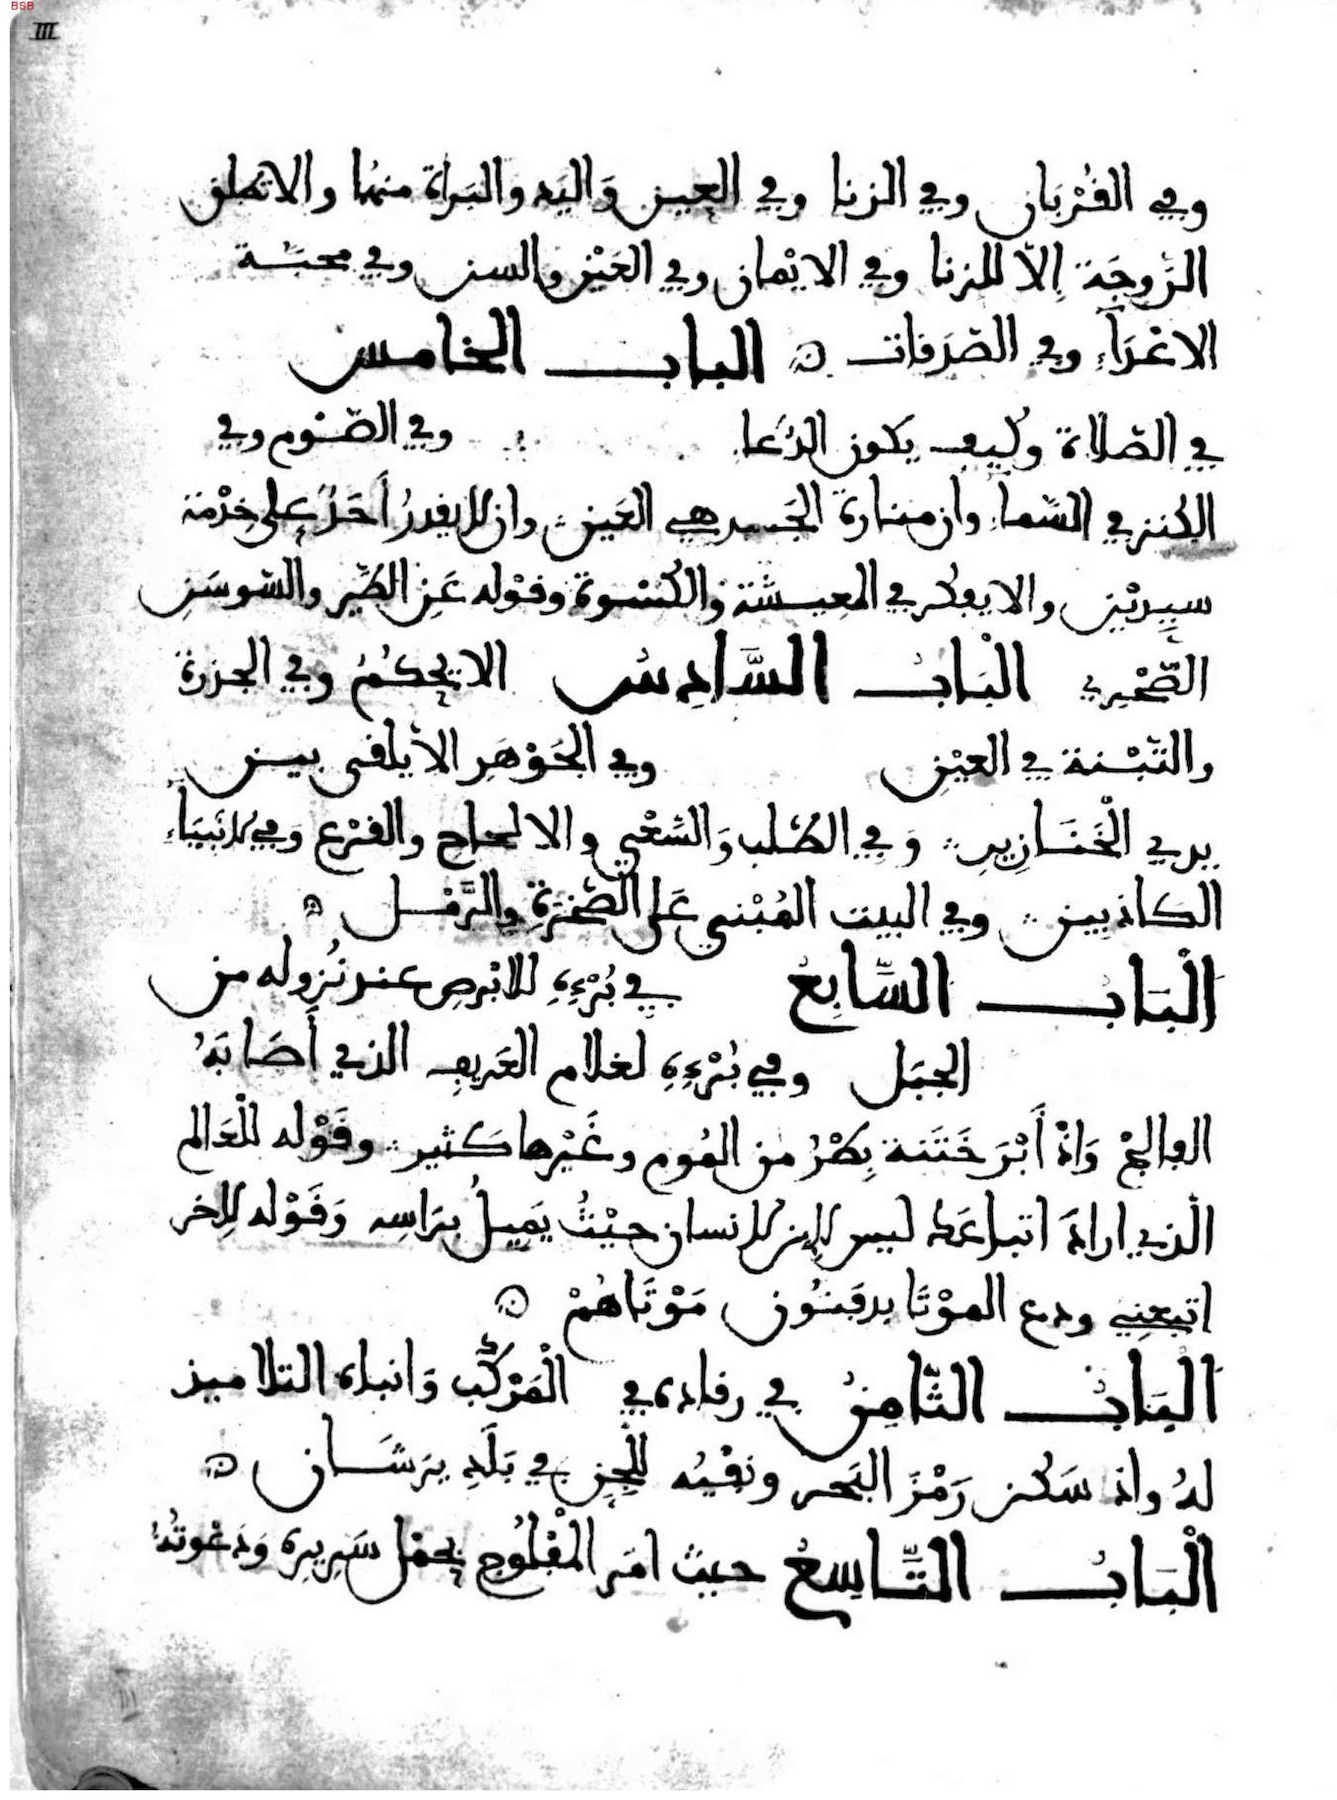 BSB
III
وفي القُرْبان وفي الزنا وفي العين وَاليَد والبَراة منهُما والا تطلق
الزّوجَة إلاّ للزنا وفي الايْمان وفي العَيْن والسن وفي محبّة
الاعْدَآءِ وفي الصّدَقات ۞ الباب الخامس
في الصّلاة وكَيف يكون الدُعَا وفي الصّوْم وفي
الكنز في السّماءِ وان منارة الجَسد هي العَين وان لا يقدرُ أحَدٌ على خِدْمة
سيِّديْن والا يفكر في المعِيشَة والكُسْوة وقوْله عَنِ الطّير والسّوسَنِ
البَابُ السَّادِسُ الا يحكُمُ وفي الجزرة
والتّبْنة في العيْن وفي الجَوْهَر الاّ يلقى بين
يدي الْخَنَازِيرِ وَفي الطّلب وَالسّعْي والالحاح والقرْع وَفي الانبيَاءِ
الكاذبِين وفي البيت المُبْني عَلى الصّخرَةِ والرَّمْل
الْبَابُ السَّابِعُ في بُرْءِهِ للابْرص عند نُزوله من
الجبَل وفي بُرْءِهِ لغلام العَريف الذي أَصَابَهُ
الفالجْ وَاذْ أَبْرَ خَتَنة بِطْرُ من المُوم وغَيْرها كَثير وقَوْله للْعَالم
الّذي ارادَ اتباعَهُ ليس لابن الانسان حيْثُ يَميلُ برَاسِه وَقَوْله للاخر
اتبعْنِي ودع الموْتَا يدفنُون مَوْتَاهُمْ ۞
الْبَابُ الثّامِنُ في رقاده في الْمَرْكَب وَانباه التلاميذ
لهُ واذ سَكن رَمْزَ البَحر ونفْيُه للْجِنِ في بَلَدِ يرشَسان
الْبَابُ التّاسِعُ حيث امَر المْفلُوج بحمْل سَرِيرِه وَدَعْوتُهُ